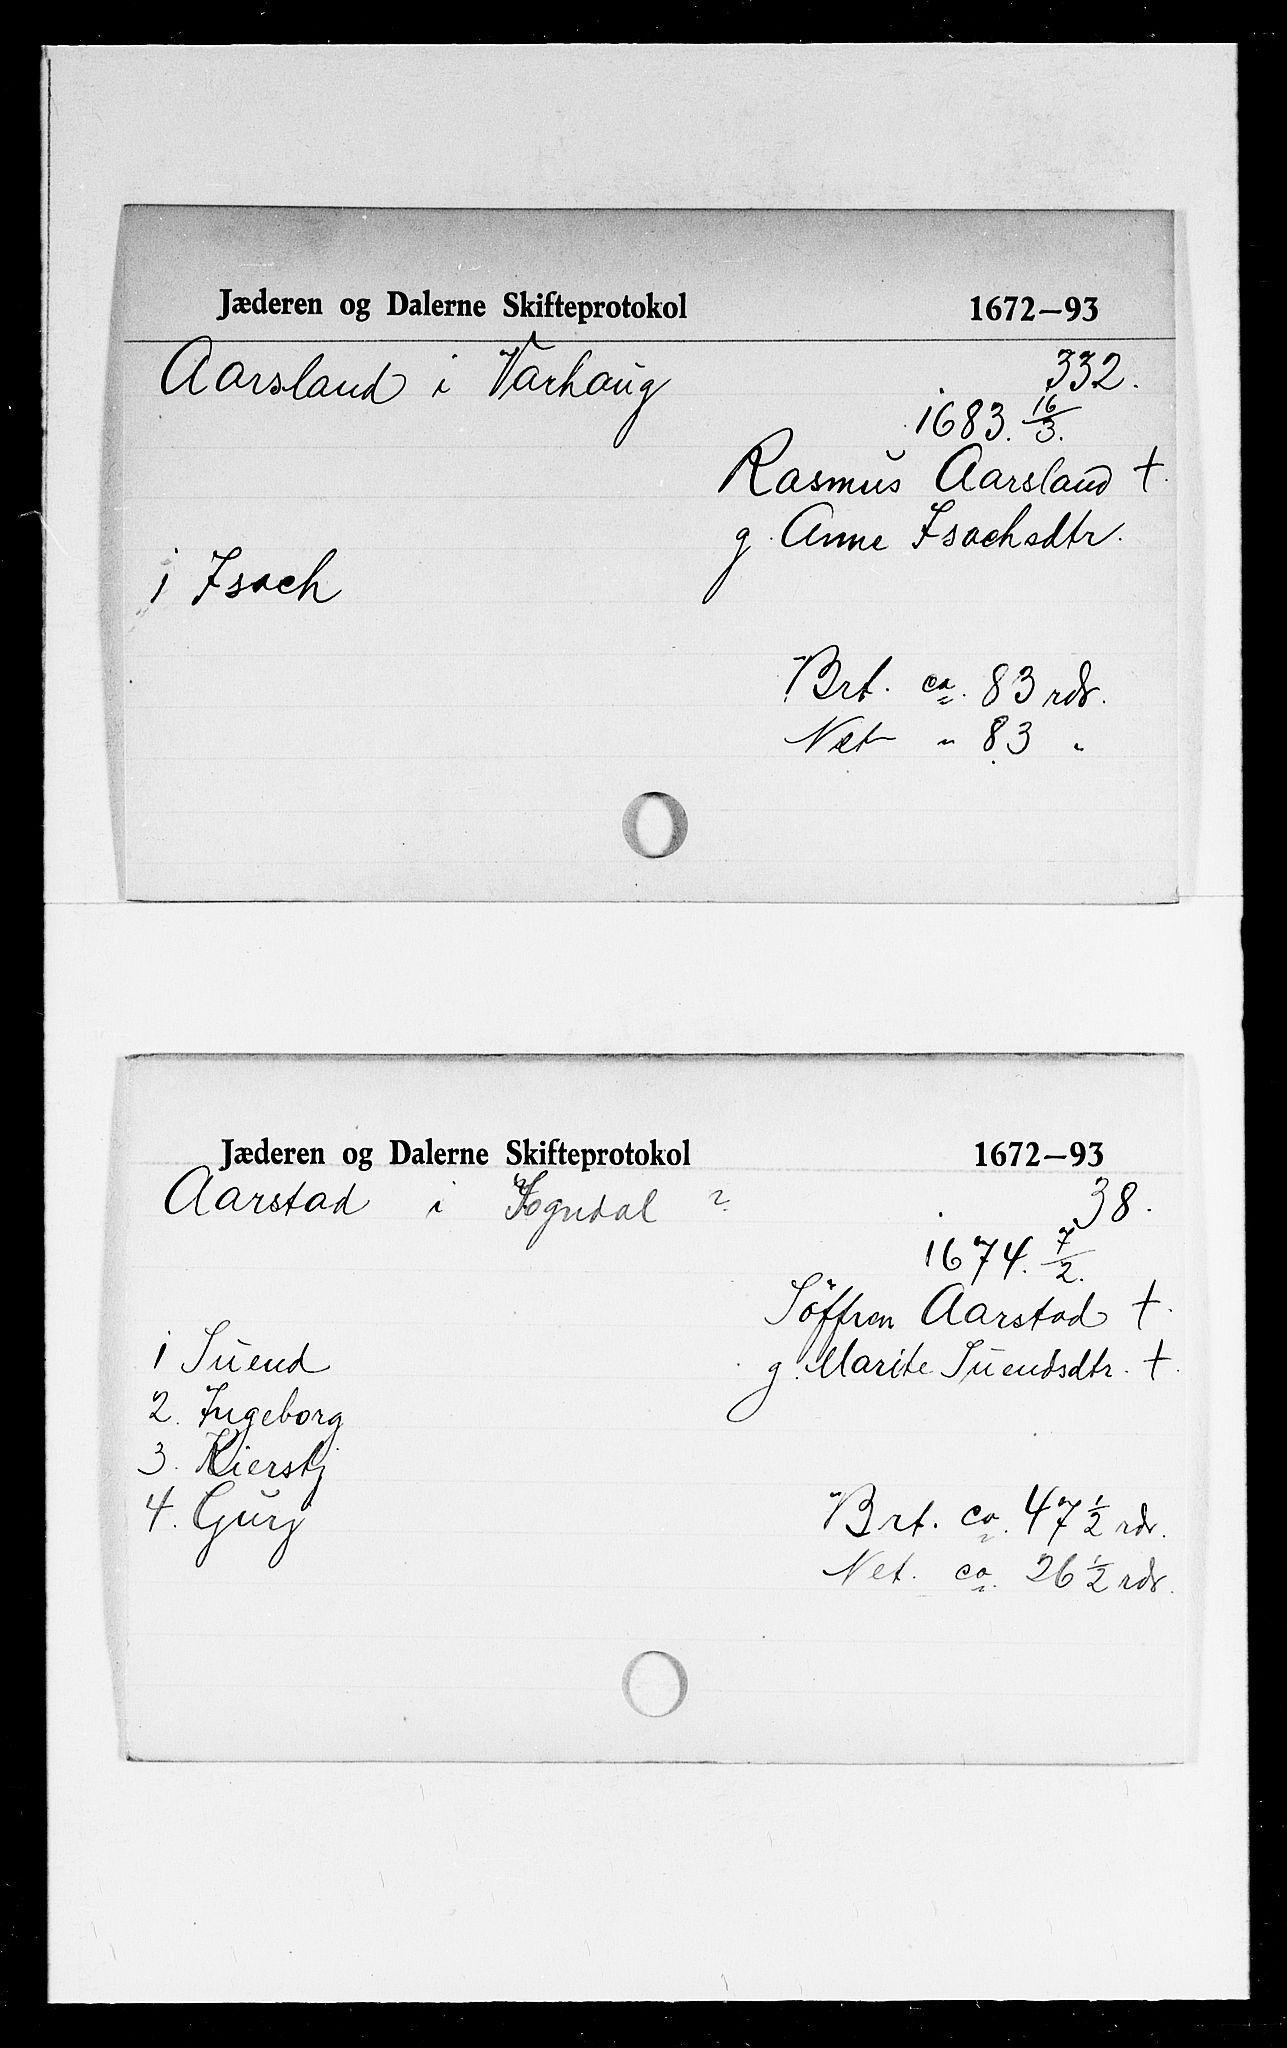 Jæderen og Dalerne Skifteprotokol 1672–93
Aarsland i Varhaug 332.
1683. 16/3.
Rasmus Aarsland †.
g. Anne Isachsdtr.
1 Isach
Brt. ca. 83 rdr.
Net " 83 "
Jæderen og Dalerne Skifteprotokol 1672–93
Aarstad i Sogndal ? 38.
1674. 7/2.
Söffren Aarstad †.
1 Suend g. Marite Suendsdtr. †.
2. Ingeborg
3. Kierstj
4. Gurj Brt. ca. 47 1/2 rdr.
Net. ca. 26 1/2 rdr.